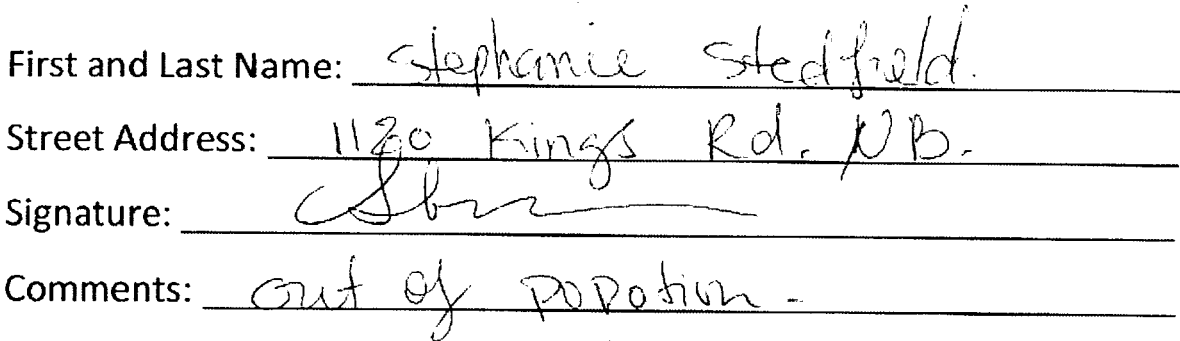 First and Last Name: Stephanie Stedfield.
Street Address: 1120 Kings Rd. NB.
Signature:
Comments: out of popotion -